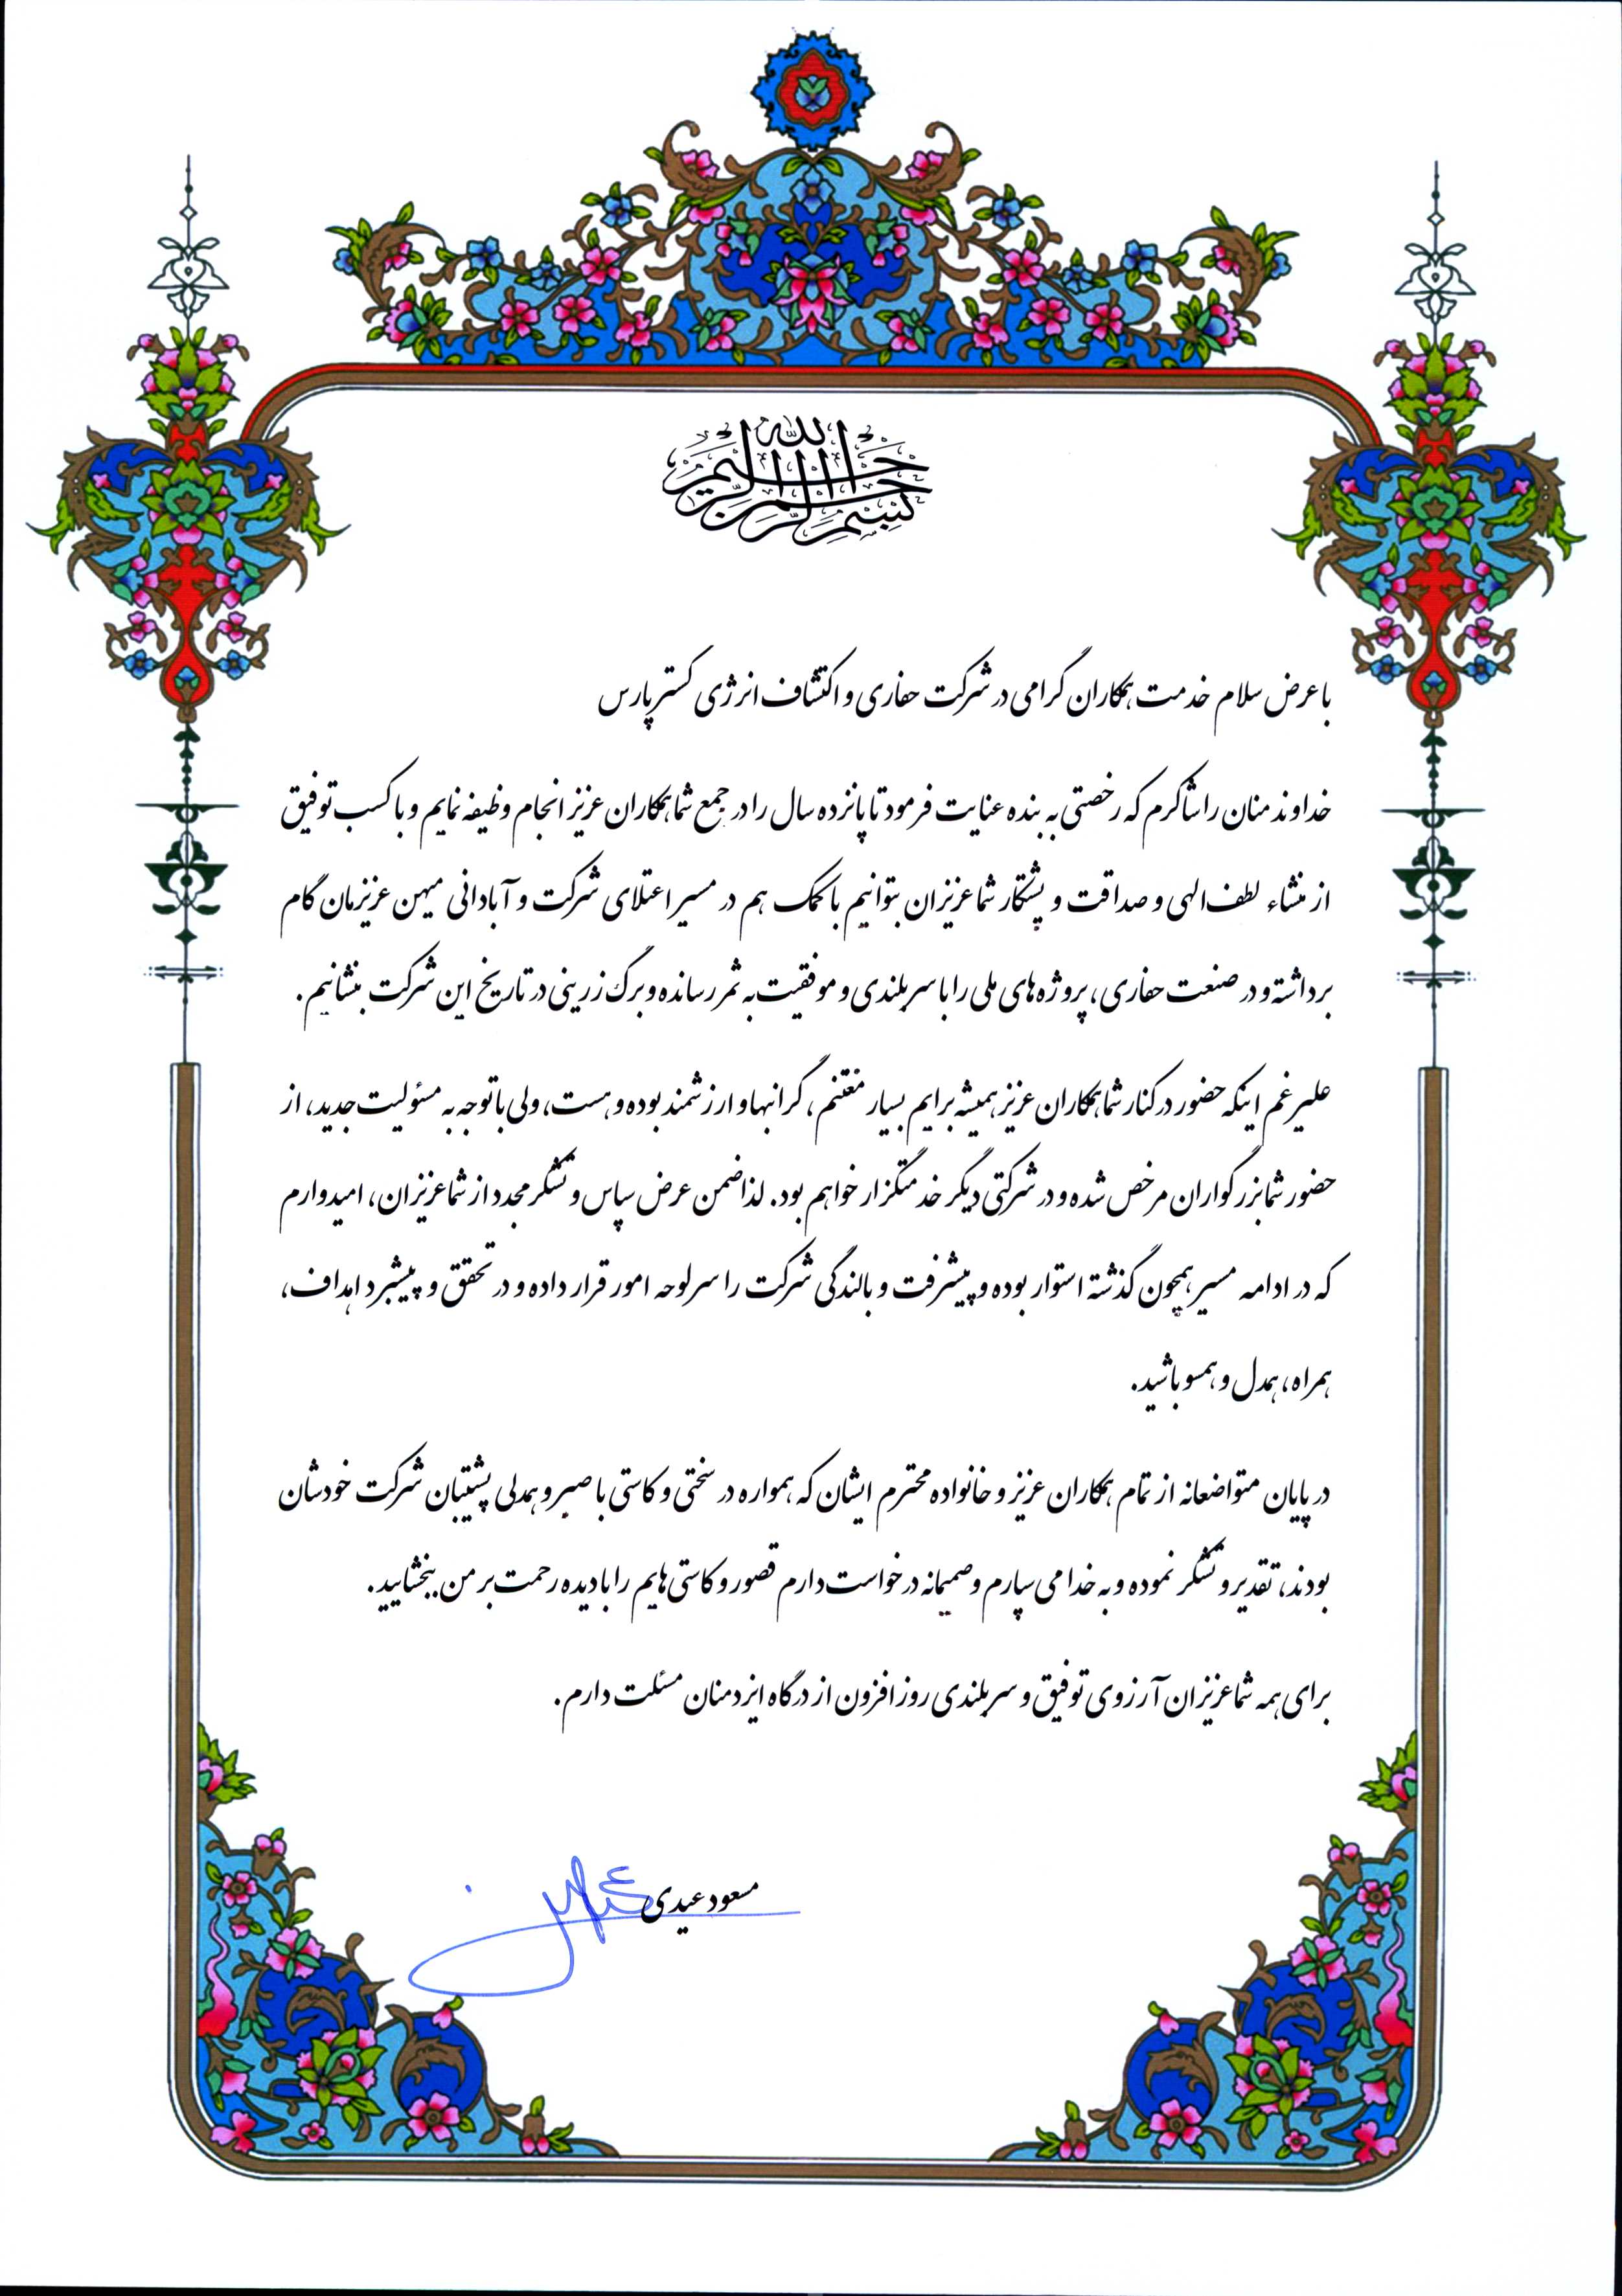 بسم الله الرحمن الرحیم
با عرض سلام خدمت همکاران گرامی در شرکت حفاری و اکتشاف انرژی گستر پارس
خداوند منان را شاکرم که رخصتی به بنده عنایت فرمود تا پانزده سال را در جمع شما همکاران عزیز انجام وظیفه نمایم و با کسب توفیق
از منشاء لطف الهی و صداقت و پشتکار شما عزیزان بتوانیم با کمک هم در مسیر اعتلای شرکت و آبادانی میهن عزیزمان گام
برداشته و در صنعت حفاری، پروژه های ملی را با سربلندی و موفقیت به ثمر رسانده و برگ زرینی در تاریخ این شرکت بنشانیم.
علیرغم اینکه حضور در کنار شما همکاران عزیز همیشه برایم بسیار مغتنم، گرانبها و ارزشمند بوده و هست، ولی با توجه به مسئولیت جدید، از
حضور شما بزرگواران مرخص شده و در شرکتی دیگر خدمتگزار خواهم بود. لذا ضمن عرض سپاس و تشکر مجدد از شما عزیزان، امیدوارم
که در ادامه مسیر همچون گذشته استوار بوده و پیشرفت و بالندگی شرکت را سرلوحه امور قرار داده و در تحقق و پیشبرد اهداف،
همراه، همدل و همسو باشید.
در پایان متواضعانه از تمام همکاران عزیز و خانواده محترم ایشان که همواره در سختی و کاستی با صبر و همدلی پشتیبان شرکت خودشان
بودند، تقدیر و تشکر نموده و به خدا می سپارم و صمیمانه درخواست دارم قصور و کاستی هایم را با دیده رحمت بر من ببخشایید.
برای همه شما عزیزان آرزوی توفیق و سربلندی روزافزون از درگاه ایزد منان مسئلت دارم.
مسعود عیدی